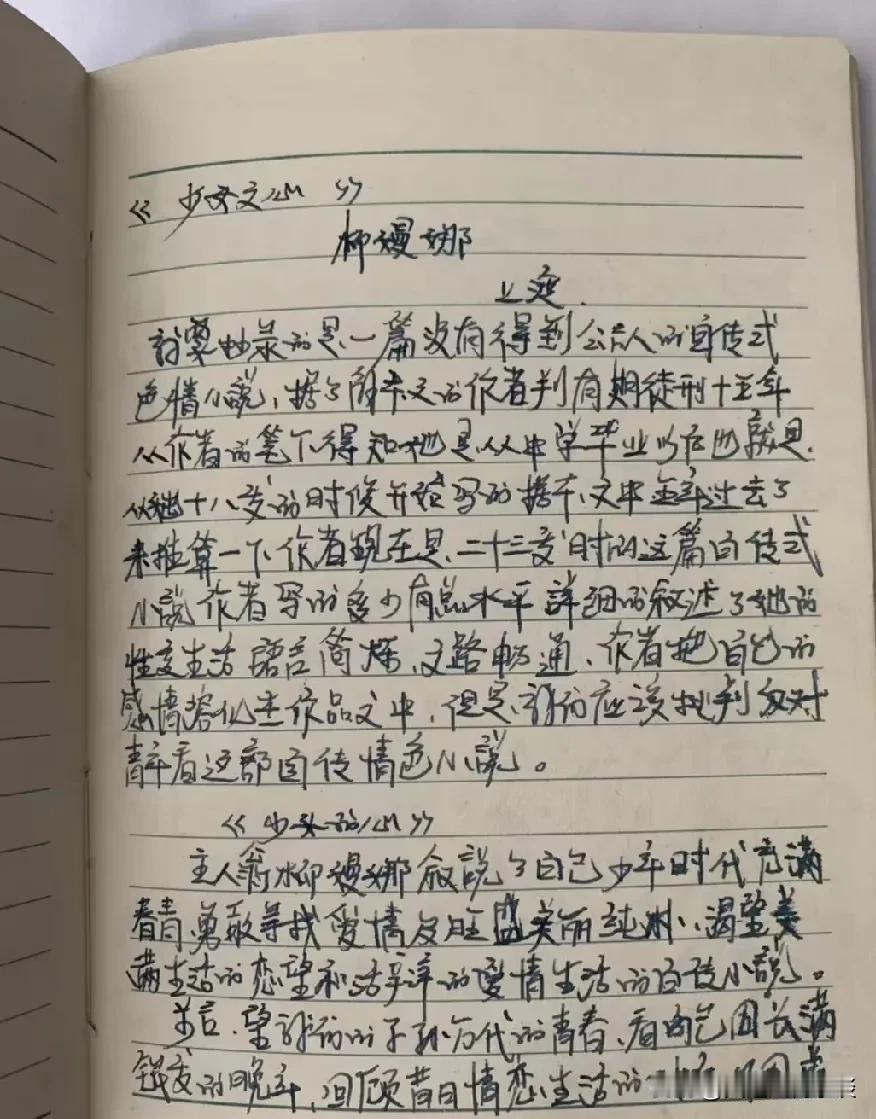 《少女之心》
柳嫚娜
上海.
我要抄录的是一篇没有得到公众人的自传式
色情小说,据了解本文的作者判有期徒刑十五年
从作者的笔下得知她是从中学毕业以后也就是.
从她十八岁的时候开始写的据本文中年过去了
来推算一下作者现在是二十三岁时的这篇自传式
小说作者写的多少有点水平詳细的叙述了她的
性交生活 語言简炼、文路畅通、作者把自己的
感情溶化在作品文中,但是、我们应该批判反对
青年看这部自传情色小说。
《少女的心》
主人翁柳嫚娜叙説了自己少年时代充满
青春勇敢寻找爱情 旺盛美丽纯 渴望美
满生活的 望和 的爱情生活的自传小说。
言、望我们的子孙万代的青春、看 满
的晚年,回顾昔日情恋生活的